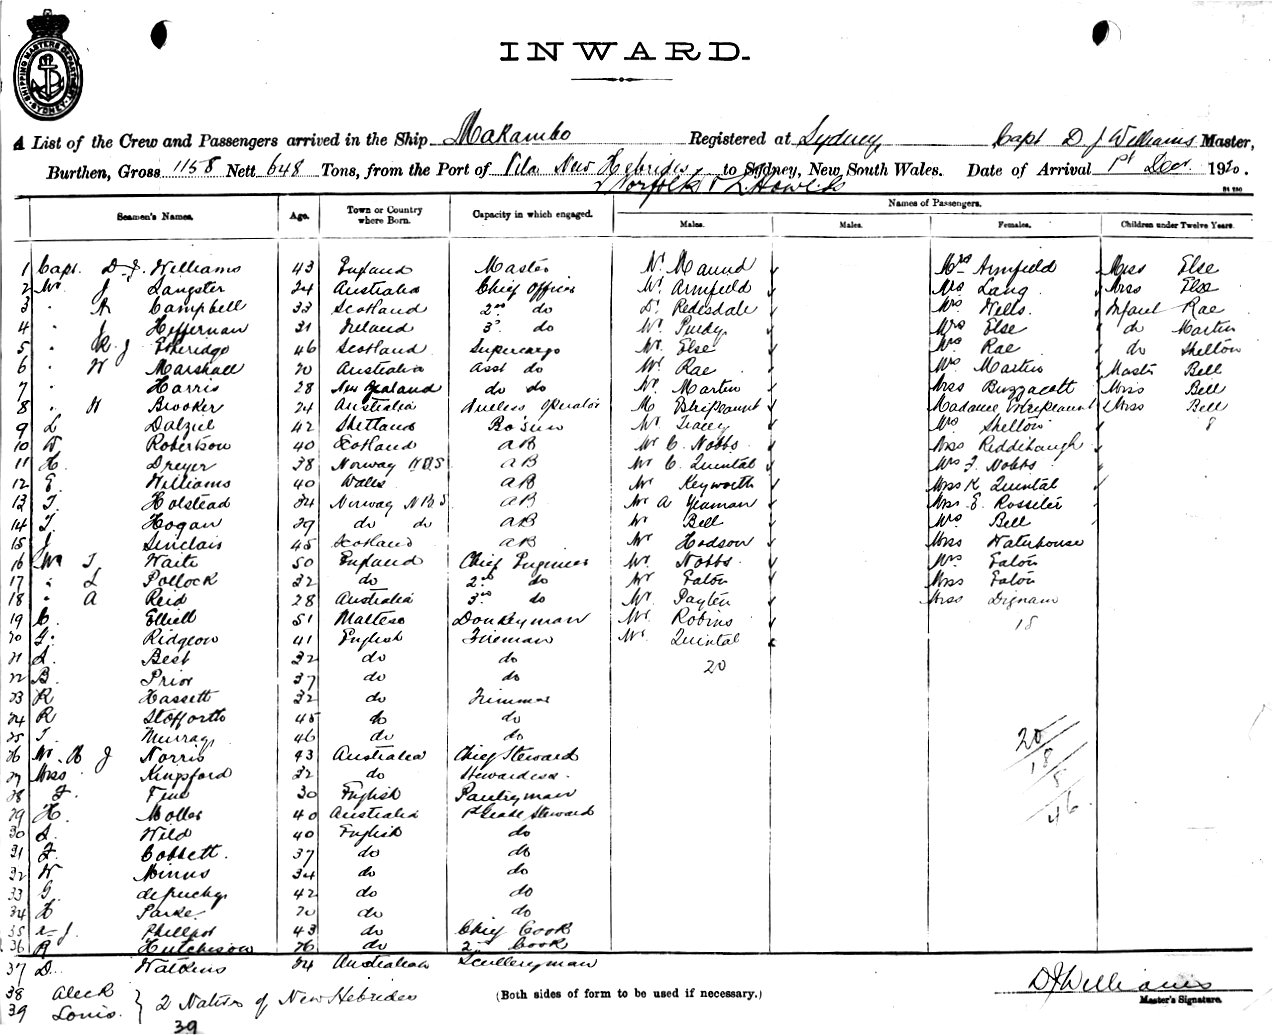 SHIPPING MASTERS DEPARTMENT SYDNEY
INWARD.
A List of the Crew and Passengers arrived in the Ship Makambo Registered at Sydney Capt D J Williams Master,
Burthen, Gross 1158 Nett 648 Tons, from the Port of Vila New Hebrides to Sydney, New South Wales. Date of Arrival 1st Decr 1920.
Norfolk & L Howe Is
Seamen's Names. Age. Town or Country where Born. Capacity in which engaged. Names of Passengers.
Males. Males. Females. Children under Twelve Years.
1 Capt. D. J. Williams 43 England Master Mr Maund Mrs Armfield Miss Else
2 Mr J Langster 34 Australia Chief Officer Mr Armfield Mrs Lang Miss Else
3 " A Campbell 33 Scotland 2nd do Dr Redesdale Mrs Wells Infant Rae
4 " J Heffernan 31 Ireland 3rd do Mr Purdy Mrs Else do Martin
5 " R J Etheridge 46 Scotland Supercargo Mr Else Mrs Rae do Shelton
6 " W Marshall 20 Australia Asst do Mr Rae Mrs Martin Mastr Bell
7 " Harris 28 New Zealand do do Mr Martin Miss Buzzacott Miss Bell
8 " H Brooker 24 Australia Wireless Operator M Madame Miss Bell
9 L Dalziel 42 Shetland Bosun Mr Tracey Mrs Shelton 8
10 W Robertson 40 Scotland AB Mr C. Nobbs Miss Reddihough
11 H. Dreyer 38 Norway NBS AB Mr C. Quintal Mrs F. Nobbs
12 E. Williams 40 Wales AB Mr Keyworth Miss K Quintal
13 T. Holstead 34 Norway NBS AB Mr A Yeaman Miss E. Rossiter
14 T. Hogan 29 do do AB Mr Bell Mrs Bell
15 J. Sinclair 45 Scotland AB Mr Hodson Miss Waterhouse
16 Mr T Waite 50 England Chief Engineer Mr Nobbs Mrs Eaton
17 " L Pollock 32 do 2nd do Mr Eaton Miss Eaton
18 " A Reid 28 Australia 3rd do Mr Payten Miss Dignam
19 C. Elliell 51 Maltese Donkeyman Mr Robins 18
20 G. Ridgeon 41 English Fireman Mr Quintal
21 A. Best 32 do do 20
22 B. Prior 37 do do
23 R Hassett 32 do Trimmer
24 R Stofforth 45 do do
25 T. Murray 46 do do 20
26 Mr. H J Norris 43 Australia Chief Steward 18
27 Miss Kingsford 32 do Stewardess. 8
28 F. Fine 30 English Pantryman 46
29 H. Moller 40 Australia 1st Grade Steward
30 A. Wild 40 English do
31 F. Cobbett. 37 do do
32 W Minns 34 do do
33 G. depuchy 42 do do
34 H Parke 20 do do
35 J. Phillpot 43 do Chief Cook
36 A Hutchison 26 do 2nd Cook
37 D. Watkins 24 Australian Sculleryman
38 Aleck
39 Louis. } 2 Natives of New Hebrides
39
(Both sides of form to be used if necessary.)
D J Williams
Master's Signature.